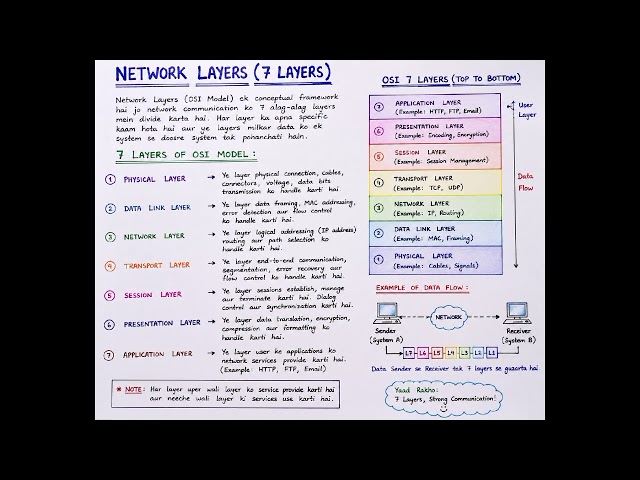 NETWORK LAYERS (7 LAYERS)
Network Layers (OSI Model) ek conceptual framework
hai jo network communication ko 7 alag-alag layers
mein divide karta hai. Har layer ka apna specific
kaam hota hai aur ye layers milkar data ko ek
system se doosre system tak pahanchati hain.
7 LAYERS OF OSI MODEL :
1 PHYSICAL LAYER → Ye layer physical connection, cables,
connectors, voltage, data bits
transmission ko handle karti hai.
2 DATA LINK LAYER → Ye layer data framing, MAC addressing,
error detection aur flow control
ko handle karti hai.
3 NETWORK LAYER → Ye layer logical addressing (IP address)
routing aur path selection ko
handle karti hai.
4 TRANSPORT LAYER → Ye layer end-to-end communication,
segmentation, error recovery aur
flow control ko handle karti hai.
5 SESSION LAYER → Ye layer sessions establish, manage
aur terminate karti hai. Dialog
control aur synchronization karti hai.
6 PRESENTATION LAYER → Ye layer data translation, encryption,
compression aur formatting ko
handle karti hai.
7 APPLICATION LAYER → Ye layer user ke applications ko
network services provide karti hai.
(Example: HTTP, FTP, Email)
* NOTE: Har layer uper wali layer ko service provide karti hai
aur neeche wali layer ki services use karti hai.
OSI 7 LAYERS (TOP TO BOTTOM)
7 APPLICATION LAYER
(Example: HTTP, FTP, Email)
6 PRESENTATION LAYER
(Example: Encoding, Encryption)
5 SESSION LAYER
(Example: Session Management)
4 TRANSPORT LAYER
(Example: TCP, UDP)
3 NETWORK LAYER
(Example: IP, Routing)
2 DATA LINK LAYER
(Example: MAC, Framing)
1 PHYSICAL LAYER
(Example: Cables, Signals)
User
Layer
Data
Flow
EXAMPLE OF DATA FLOW :
NETWORK
Sender
(System A)
Receiver
(System B)
L7 L6 L5 L4 L3 L2 L1
Data Sender se Receiver tak 7 layers se guzarta hai.
Yaad Rakho:
7 Layers, Strong Communication!